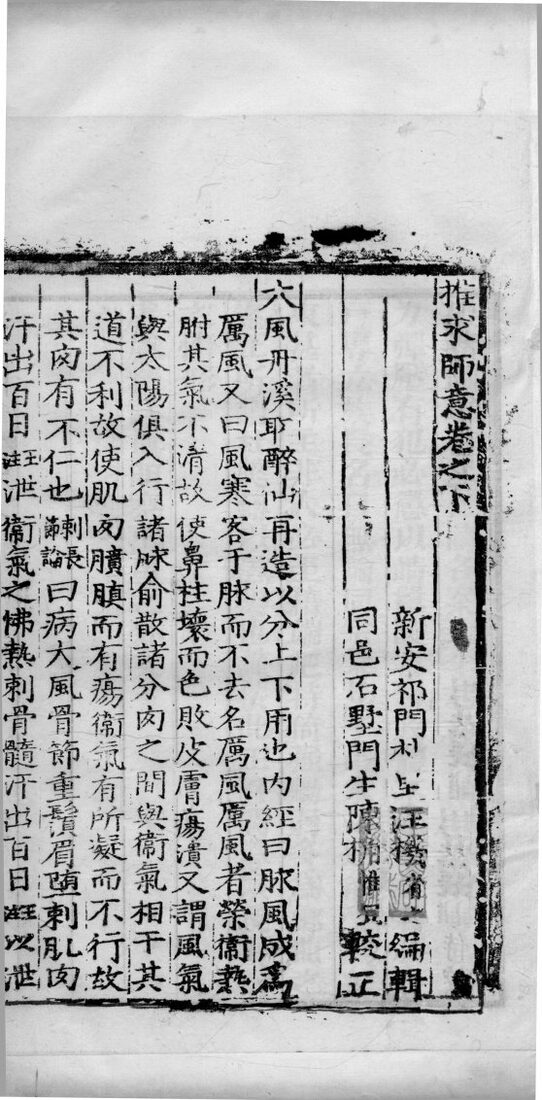 推求師意卷之下
新安祁門朴里汪機省之編輯
同邑石墅門生陳桷惟宜較正
大風丹溪取醉仙再造以分上下用也内經曰脉風成爲
厲風又曰風寒客于脉而不去名厲風厲風者榮衞熱
胕其氣不清故使鼻柱壞而色敗皮膚瘍潰又謂風氣
與太陽俱入行諸脉俞散諸分肉之間與衞氣相干其
道不利故使肌肉䐜膹而有瘍衞氣有所凝而不行故
其肉有不仁也長刺節論曰病大風骨節重鬚眉堕刺肌肉
汗出百日王註泄衞氣之怫熱刺骨髓汗出百日王註以泄